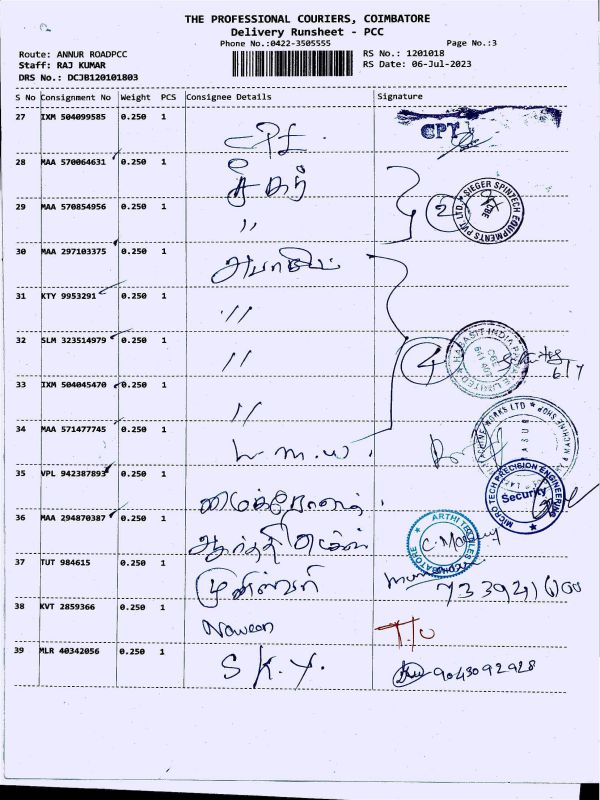 THE PROFESSIONAL COURIERS, COIMBATORE
Delivery Runsheet - PCC
Phone No.:0422-3505555 Page No.:3
Route: ANNUR ROADPCC RS No.: 1201018
Staff: RAJ KUMAR RS Date: 06-Jul-2023
DRS No.: DCJB120101803
S No Consignment No Weight PCS Consignee Details Signature
27 IXM 504099585 0.250 1
CPT
28 MAA 570064631 0.250 1
2 SIEGER SPINTECH EQUIPMENTS PVT LTD CBE
29 MAA 570854956 0.250 1 "
30 MAA 297103375 0.250 1
31 KTY 9953291 0.250 1 "
32 SLM 323514979 0.250 1 "
4 HABASIT INDIA PRIVATE LIMITED
6/7
33 IXM 504045470 0.250 1 "
34 MAA 571477745 0.250 1 L.M.W.
35 VPL 942387893 0.250 1
MICRO TECH PRECISION ENGINEERING Security
36 MAA 294870387 0.250 1 ஆர்த்தி
ARTHI TEXTILES COIMBATORE
37 TUT 984615 0.250 1 முனீஸ்வரி
38 KVT 2859366 0.250 1 Naveen T/O
39 MLR 40342056 0.250 1 S.K.Y. 9043092928